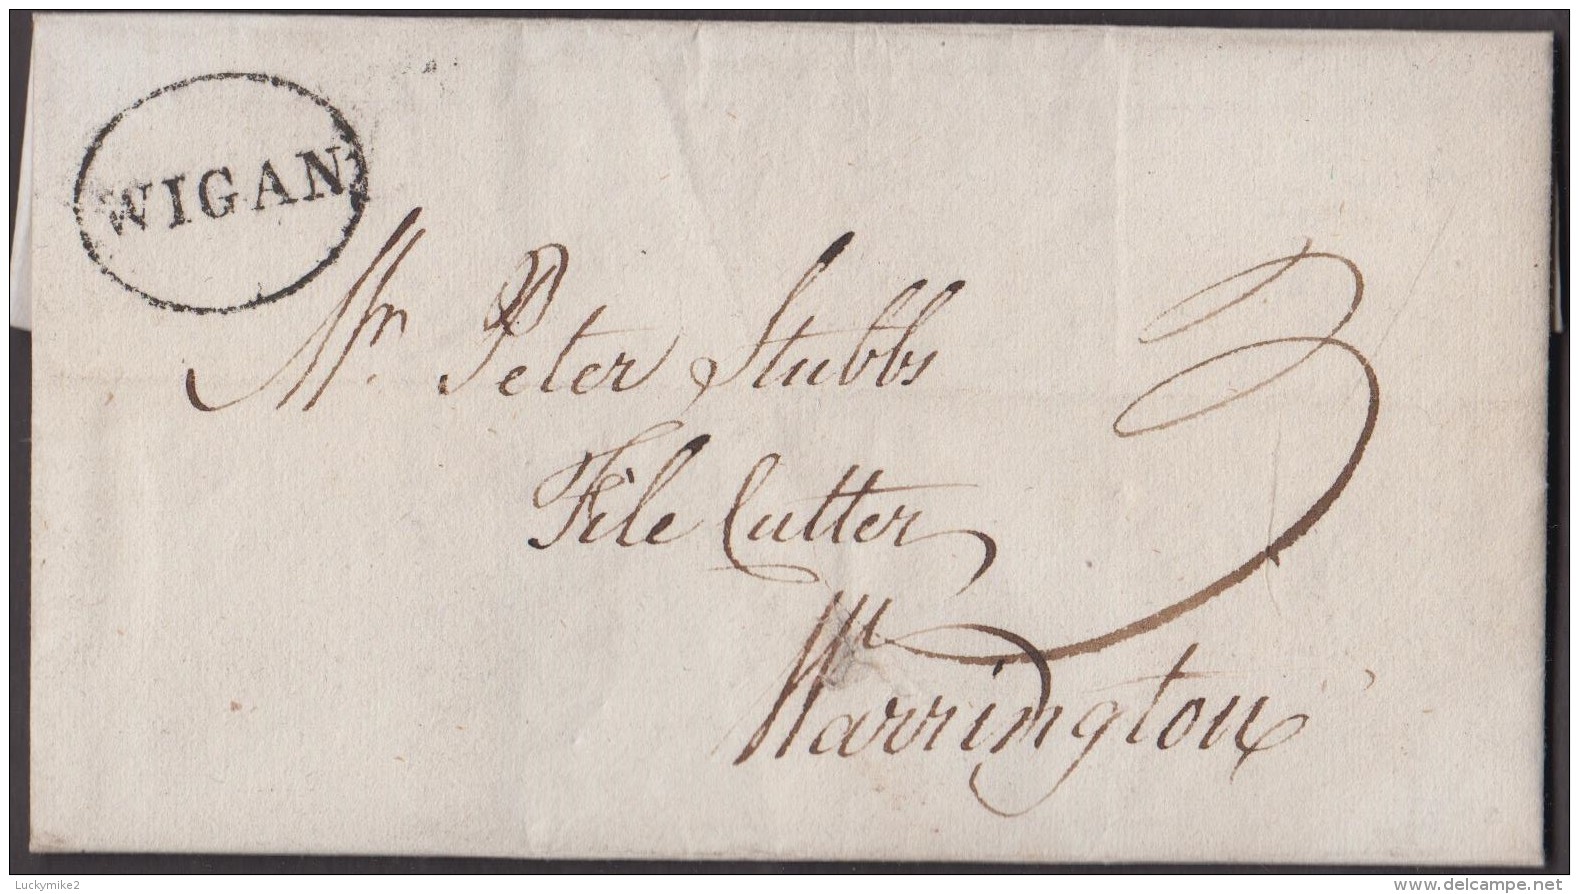 WIGAN
Mr. Peter Stubbs
3
File Cutter
Warrington
Luckymike2
www.delcampe.net